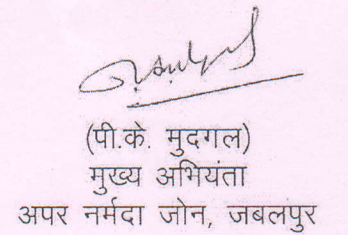 (पी.के. मुदगल)
मुख्य अभियंता
अपर नर्मदा जोन, जबलपुर